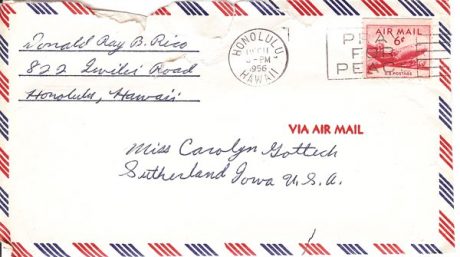 Donald Ray B. Rico
822 Iwilei Road
Honolulu, Hawaii
HONOLULU
-PM
1956
HAWAII
PRAY
FOR
PEACE
AIR MAIL
6¢
U.S. POSTAGE
VIA AIR MAIL
Miss Carolyn Gottsch
Sutherland Iowa U.S.A.